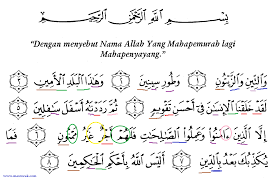 بِسْمِ اللَّهِ الرَّحْمَٰنِ الرَّحِيمِ
"Dengan menyebut Nama Allah Yang Mahapemurah lagi
Mahapenyayang."
وَالتِّينِ وَالزَّيْتُونِ ١ وَطُورِ سِينِينَ ٢ وَهَٰذَا الْبَلَدِ الْأَمِينِ ٣
لَقَدْ خَلَقْنَا الْإِنسَانَ فِي أَحْسَنِ تَقْوِيمٍ ٤ ثُمَّ رَدَدْنَاهُ أَسْفَلَ سَافِلِينَ ٥
إِلَّا الَّذِينَ آمَنُوا وَعَمِلُوا الصَّالِحَاتِ فَلَهُمْ أَجْرٌ غَيْرُ مَمْنُونٍ ٦ فَمَا
يُكَذِّبُكَ بَعْدُ بِالدِّينِ ٧ أَلَيْسَ اللَّهُ بِأَحْكَمِ الْحَاكِمِينَ ٨